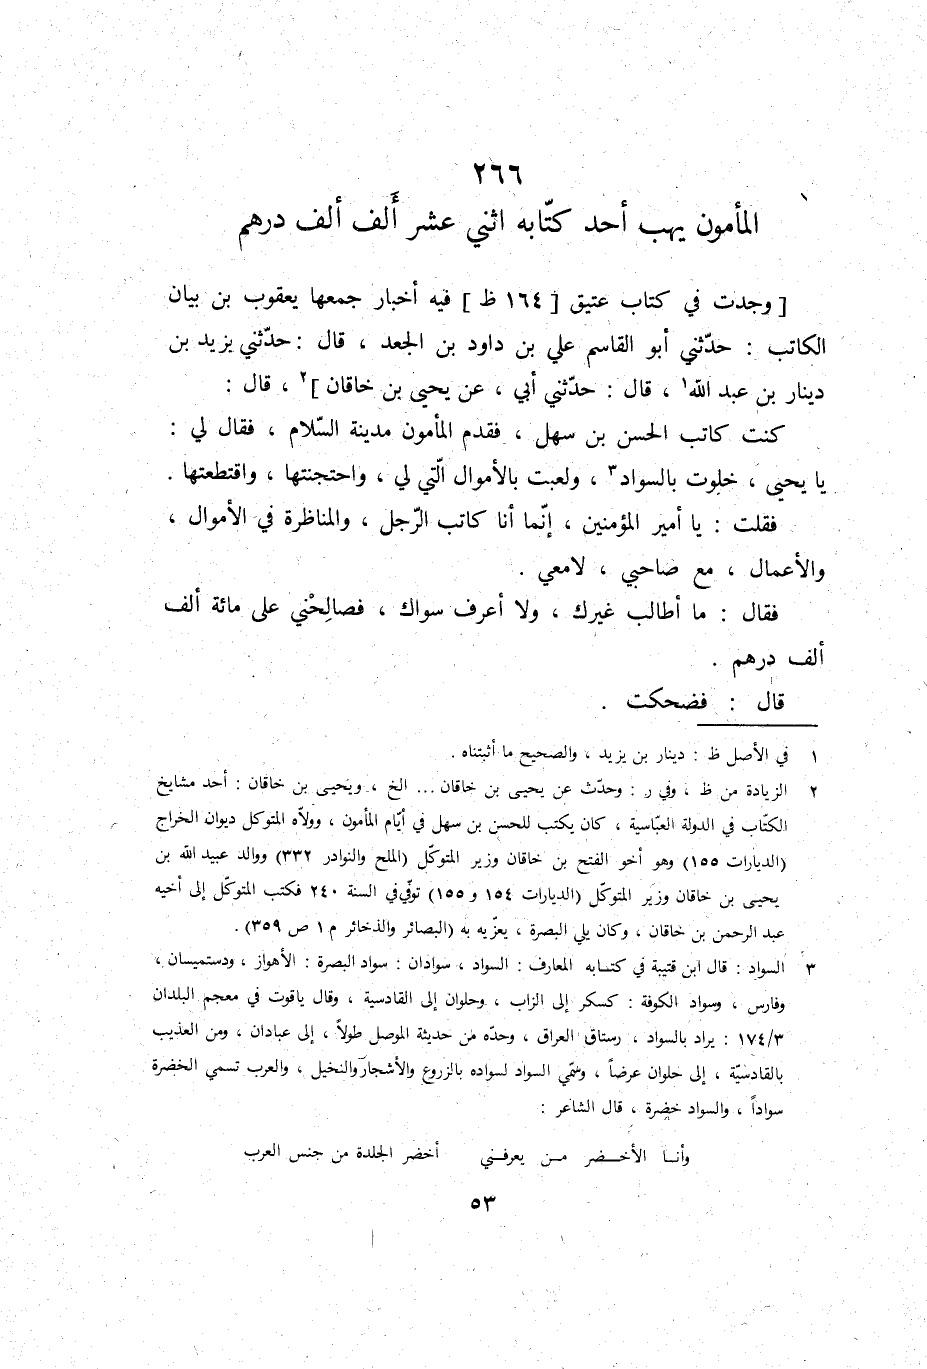 ٢٦٦
المأمون يهب أحد كتّابه اثني عشر أَلف ألف درهم
[ وجدت في كتاب عتيق [ ١٦٤ ظ ] فيه أخبار جمعها يعقوب بن بيان
الكاتب : حدّثني أبو القاسم علي بن داود بن الجعد ، قال : حدّثني يزيد بن
دينار بن عبد الله١ ، قال : حدّثني أبي ، عن يحيى بن خاقان ]٢ ، قال :
كنت كاتب الحسن بن سهل ، فقدم المأمون مدينة السّلام ، فقال لي :
يا يحيى ، خلوت بالسواد٣ ، ولعبت بالأموال الّتي لي ، واحتجنتها ، واقتطعتها .
فقلت : يا أمير المؤمنين ، إنّما أنا كاتب الرّجل ، والمناظرة في الأموال ،
والأعمال ، مع صاحبي ، لامعي .
فقال : ما أطالب غيرك ، ولا أعرف سواك ، فصالِحْني على مائة ألف
ألف درهم .
قال : فضحكت .
١ في الأصل ظ : دينار بن يزيد ، والصحيح ما أثبتناه .
٢ الزيادة من ظ ، وفي ر : وحدّث عن يحيى بن خاقان ... الخ ، ويحيى بن خاقان : أحد مشايخ
الكتّاب في الدولة العبّاسية ، كان يكتب للحسن بن سهل في أيّام المأمون ، وولّاه المتوكل ديوان الخراج
(الديارات ١٥٥) وهو أخو الفتح بن خاقان وزير المتوكّل (الملح والنوادر ٣٣٢) ووالد عبيد الله بن
يحيى بن خاقان وزير المتوكّل (الديارات ١٥٤ و ١٥٥) توفّي في السنة ٢٤٠ فكتب المتوكّل إلى أخيه
عبد الرحمن بن خاقان ، وكان يلي البصرة ، يعزّيه به (البصائر والذخائر م ١ ص ٣٥٩) .
٣ السواد : قال ابن قتيبة في كتابه المعارف : السواد ، سوادان : سواد البصرة : الأهواز ، ودستميسان ،
وفارس ، وسواد الكوفة : كسكر إلى الزاب ، وحلوان إلى القادسية ، وقال ياقوت في معجم البلدان
١٧٤/٣ : يراد بالسواد ، رستاق العراق ، وحدّه من حديثة الموصل طولاً ، إلى عبادان ، ومن العذيب
بالقادسيّة ، إلى حلوان عرضاً ، وسمّي السواد لسواده بالزروع والأشجار والنخيل ، والعرب تسمي الخضرة
سواداً ، والسواد خضرة ، قال الشاعر :
وأنا الأخضر من يعرفني أخضر الجلدة من جنس العرب
٥٣